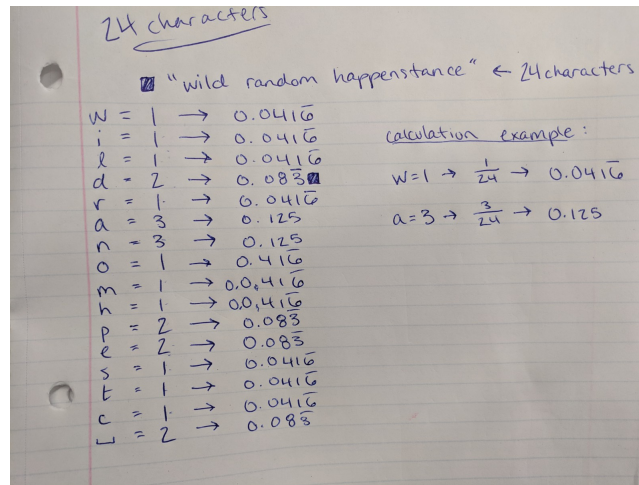 24 characters
"wild random happenstance" ← 24 characters
w = 1 → 0.0416̅
i = 1 → 0.0416̅
l = 1 → 0.0416̅
d = 2 → 0.083̅
r = 1 → 0.0416̅
a = 3 → 0.125
n = 3 → 0.125
o = 1 → 0.416̅
m = 1 → 0.0,416̅
h = 1 → 0.0,416̅
p = 2 → 0.083̅
e = 2 → 0.083̅
s = 1 → 0.0416̅
t = 1 → 0.0416̅
c = 1 → 0.0416̅
␣ = 2 → 0.083̅
calculation example:
w=1 → 1/24 → 0.0416̅
a=3 → 3/24 → 0.125